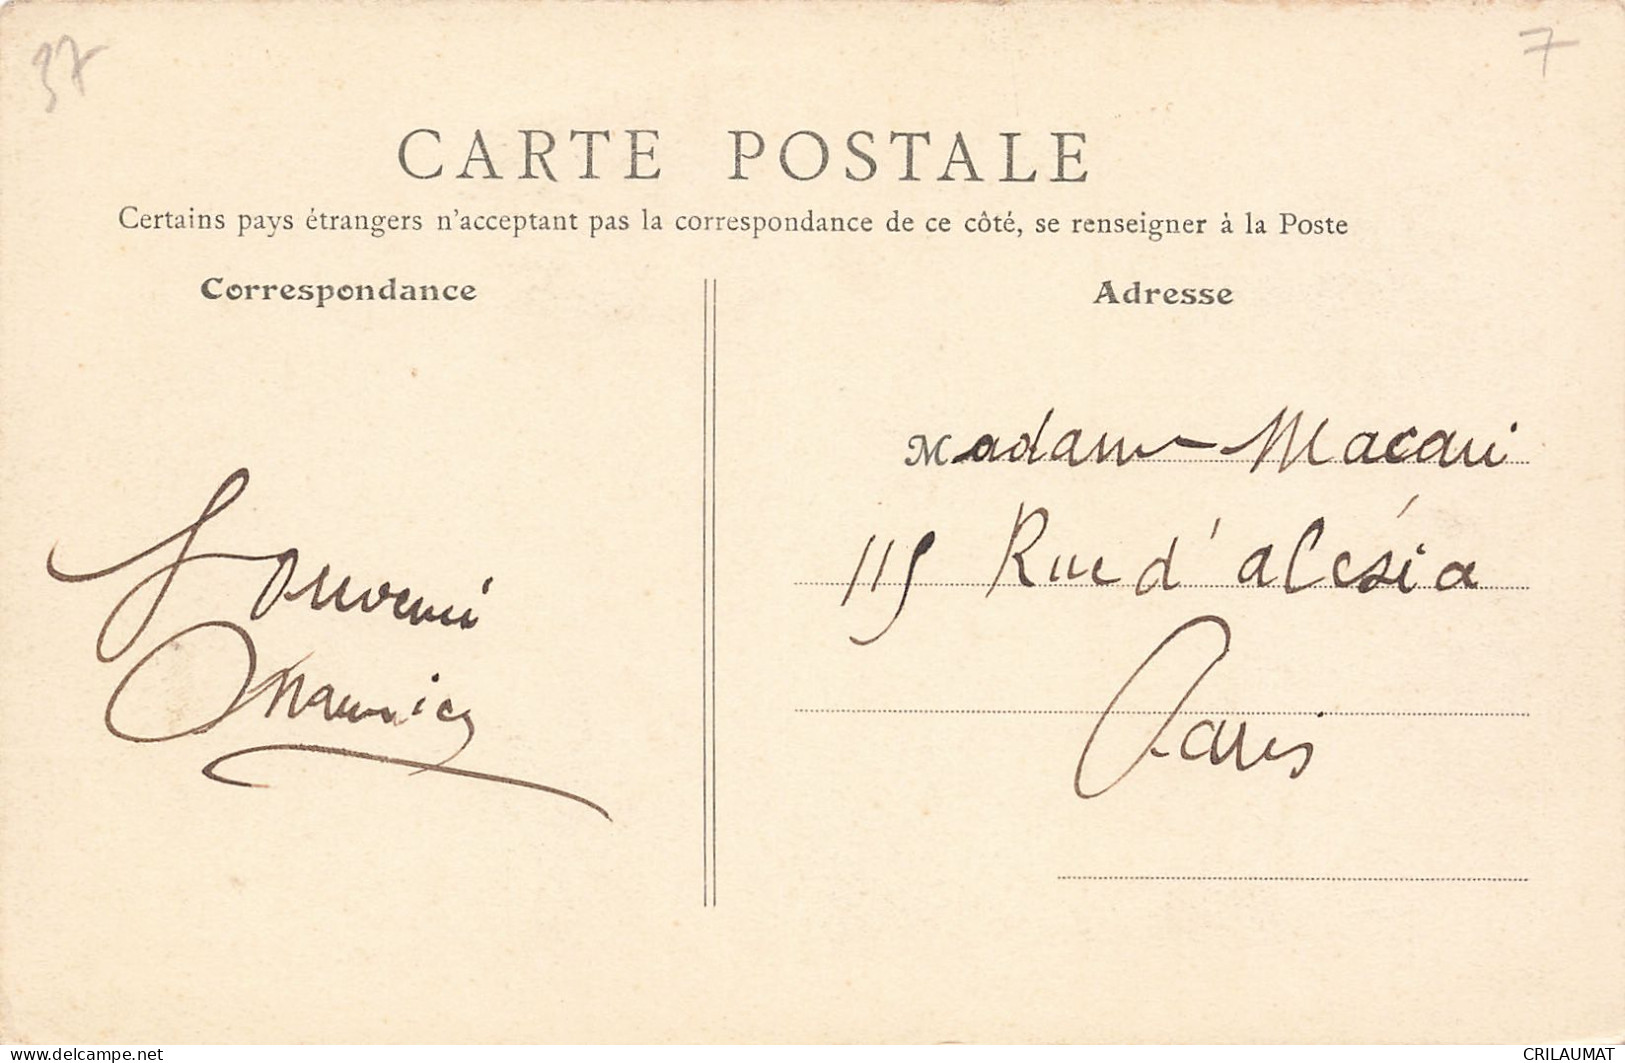 37
7
CARTE POSTALE
Certains pays étrangers n'acceptant pas la correspondance de ce côté, se renseigner à la Poste
Correspondance
Souvenir
Maurice
Adresse
Madame Macari
115 Rue d'alésia
Paris
www.delcampe.net
CRILAUMAT